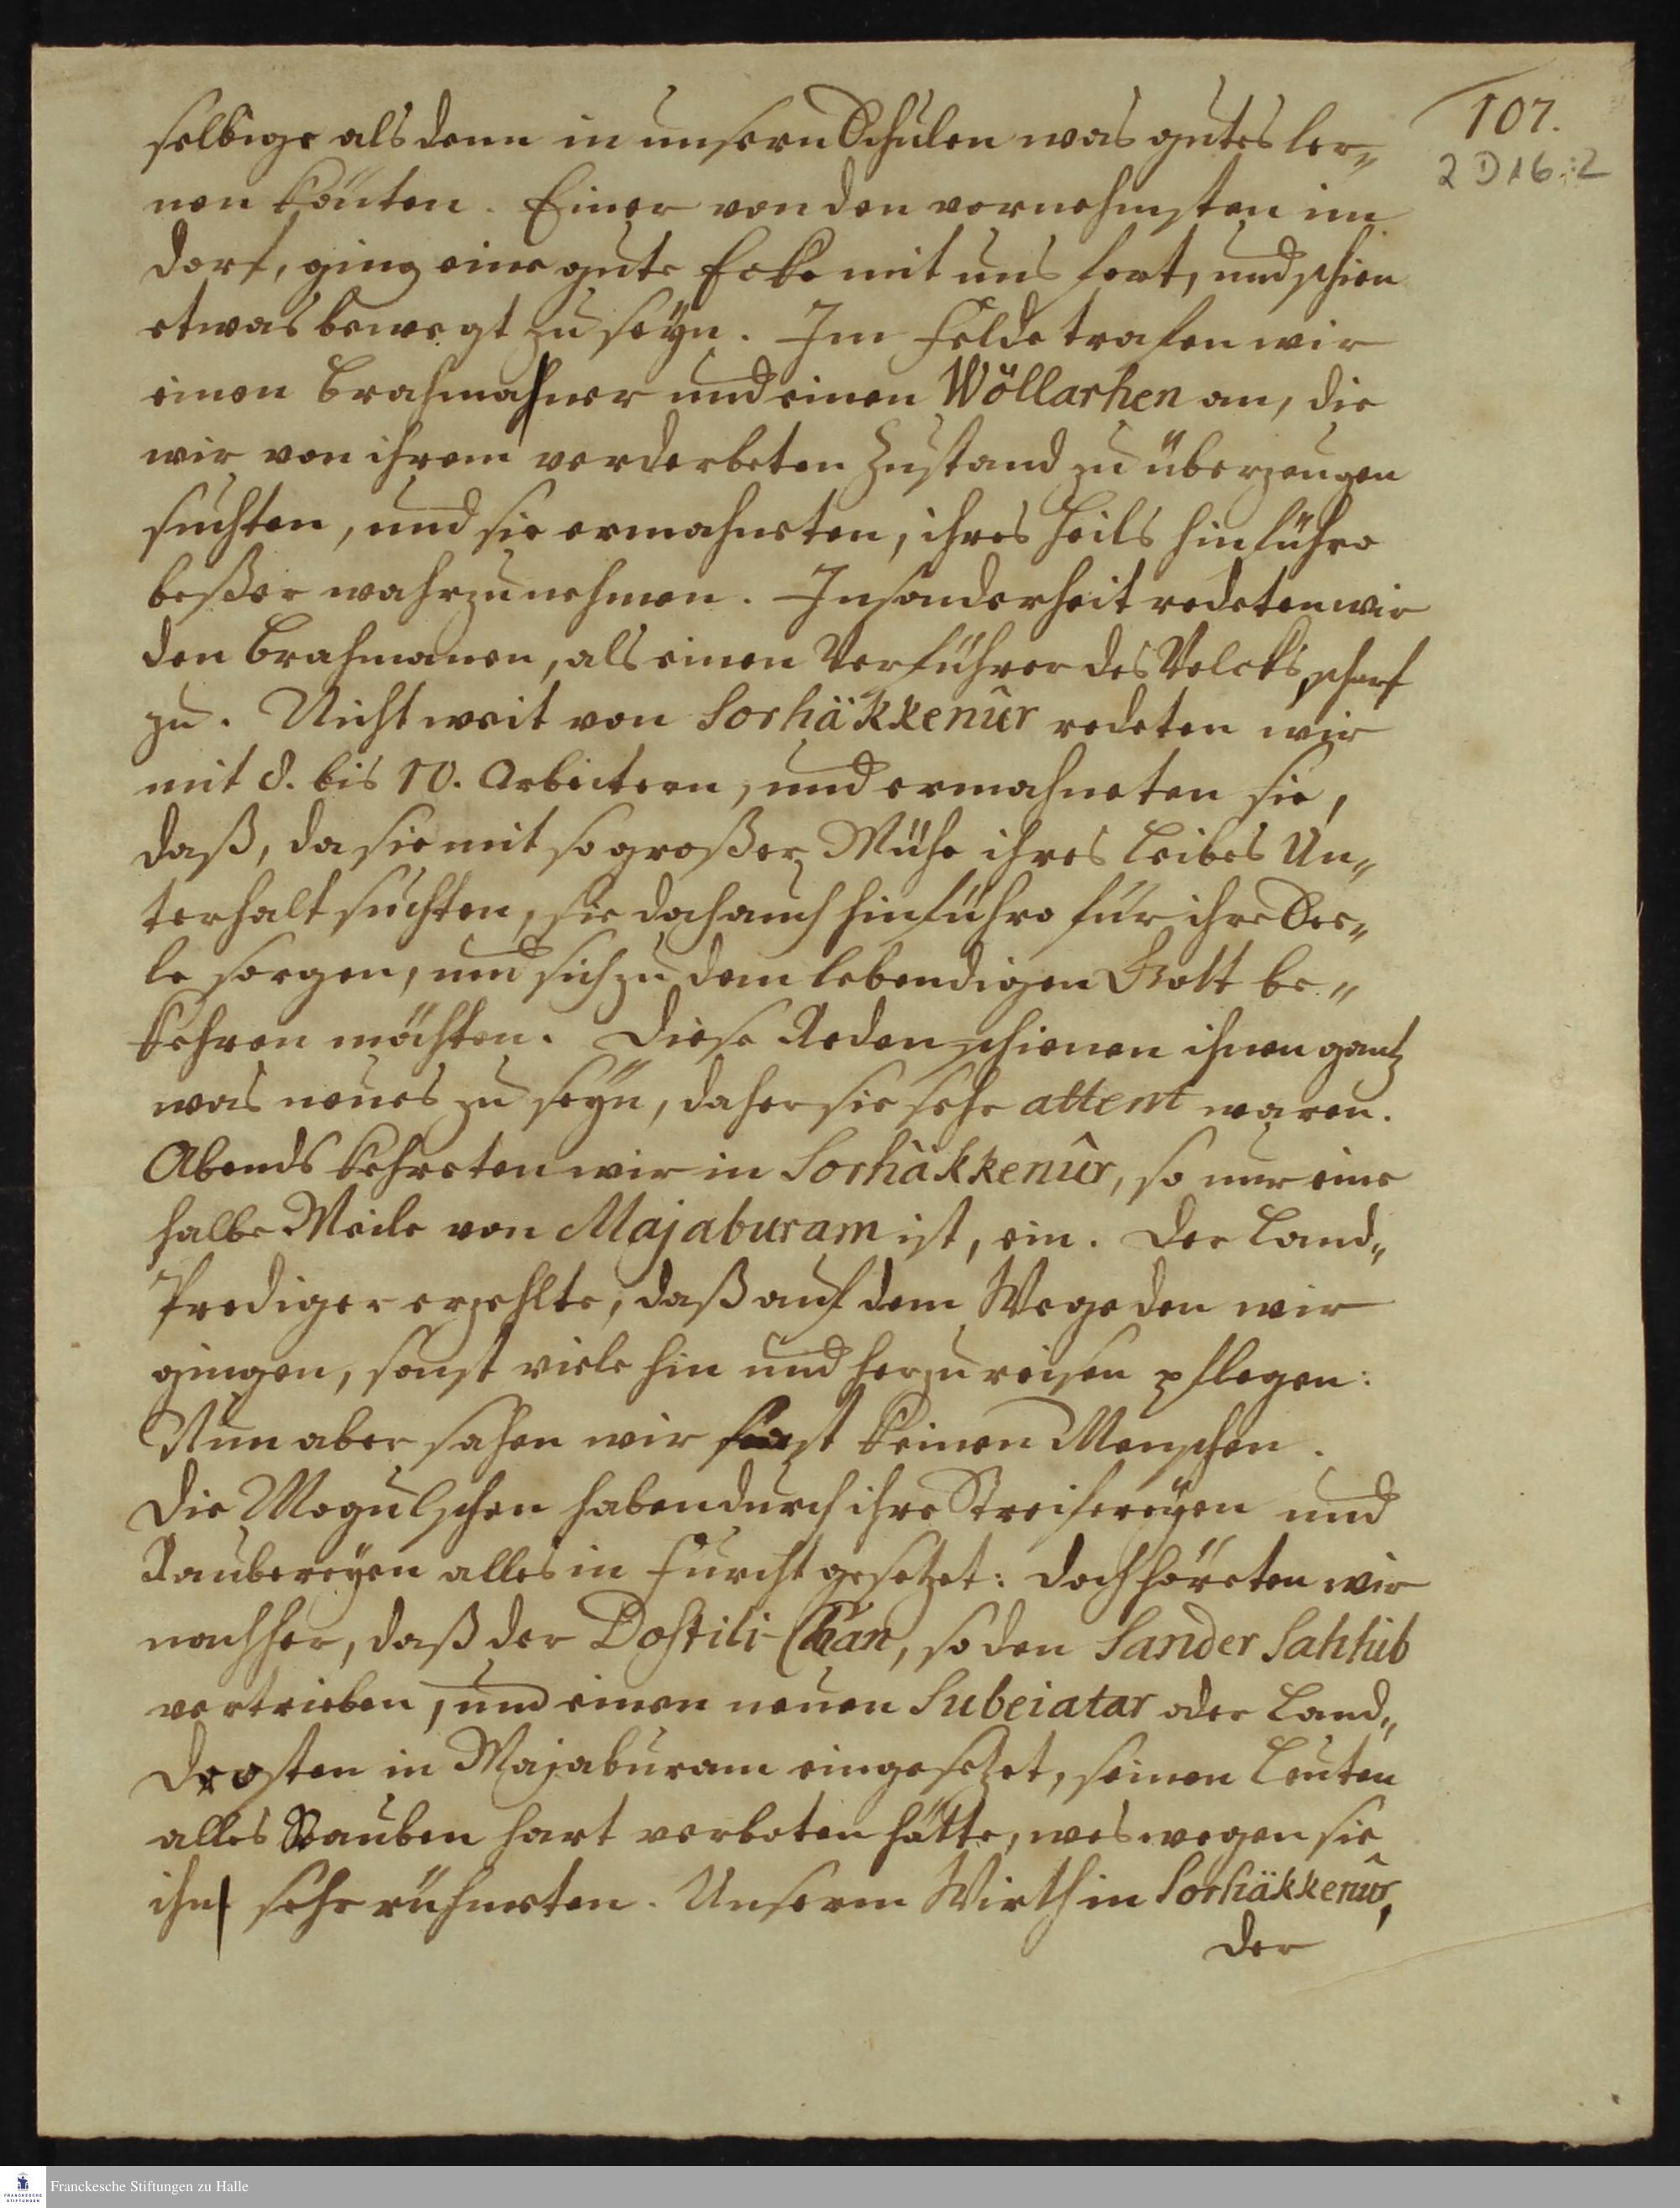 107.
2 D 16 : 2
selbige als denn in unsern Schulen was gutes ler„
nen könten. Einer von den vornehmsten im
dorf, ging eine gute Ecke mit uns fort, und schien
etwas bewegt zu seyn. Im Felde trafen wir
einen Brahmahner und einen Wöllarhen an, die
wir von ihrem verderbeten Zustand zu überzeugen
suchten, und sie ermahnten, ihres Heils hinführo
beßer wahrzunehmen. Insonderheit redeten wir
den Brahmanen, als einen Verführer des Volcks scharf
zu. Nicht weit von Sorhäkkenûr redeten wir
mit 8. bis 10. Arbeitern, und ermahneten sie,
daß, da sie mit so großer Mühe ihres Leibes Un„
terhalt suchten, sie doch auch hinführo für ihre See„
le sorgen, und sich zu dem lebendigen Gott be„
kehren möchten. Diese Reden schienen ihnen gantz
was neues zu seyn, daher sie sehr attent waren.
Abends kehreten wir in Sorhäkkenûr, so nur eine
halbe Meile von Majaburam ist, ein. Der Land„
Prediger erzehlte, daß auf dem Wege den wir
gingen, sonst viele hin und her zu reisen pflegen:
Nun aber sahen wir fast keinen Menschen.
Die Mogulschen haben durch ihre Streifereyen und
Raubereyen alles in Furcht gesetzet: doch höreten wir
nachher, daß der Dostili-Chan, so den Sander Sahhib
vertrieben, und einen neuen Subeiatar oder Land„
Drosten in Majaburam eingesetzet, seinen Leuten
alles Rauben hart verboten hätte, weswegen sie
ihn sehr rühmten. Unserm Wirth in Sorhäkkenûr,
der
Franckesche Stiftungen zu Halle
FRANCKESCHE
STIFTUNGEN